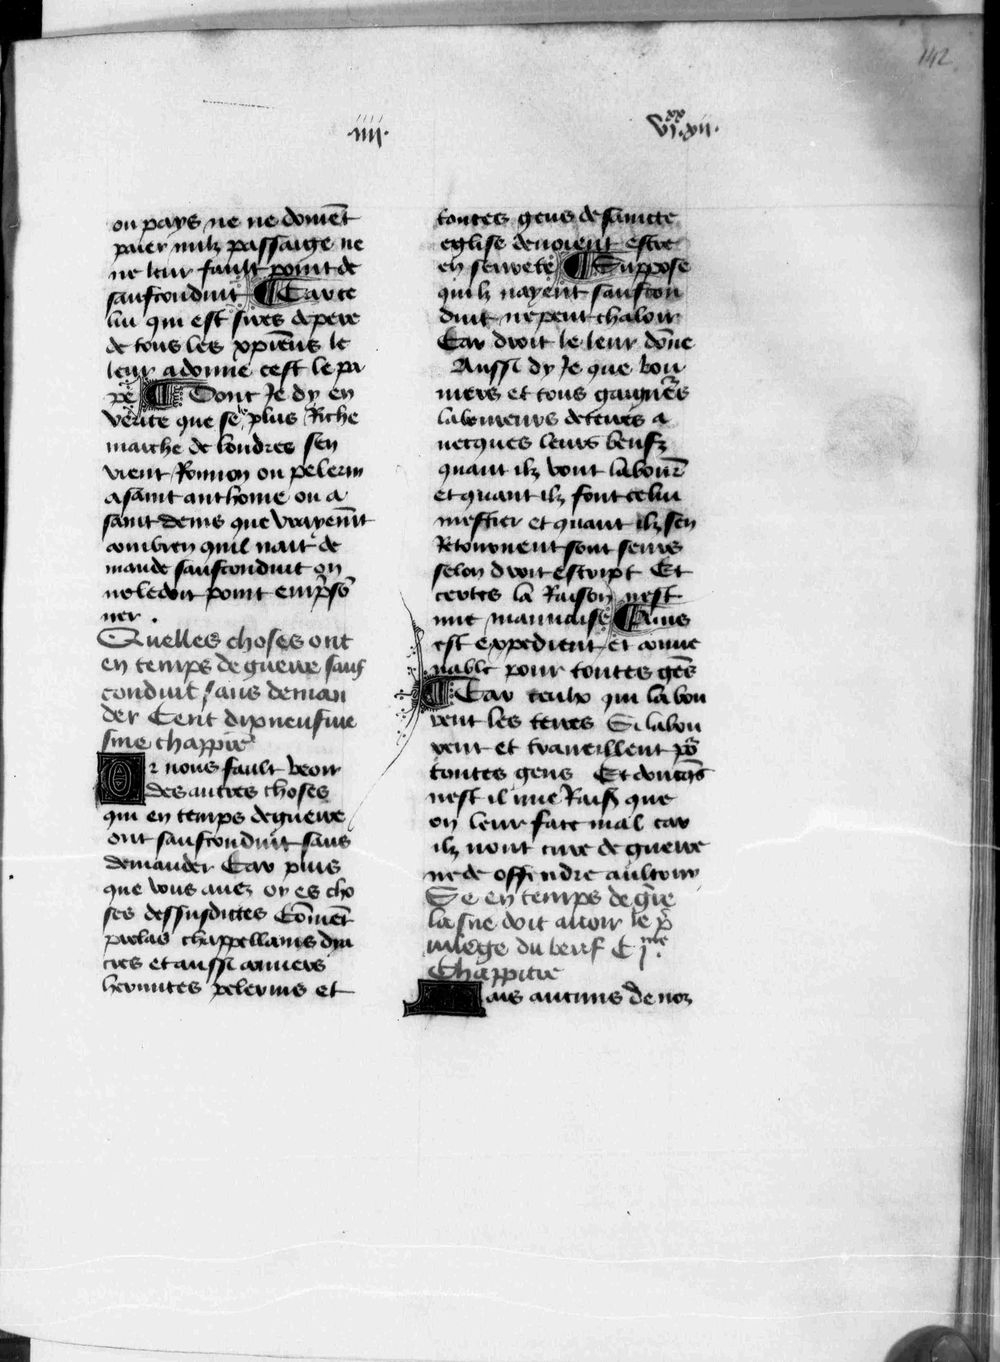 142
.iiii.
vi.xx xii.
ou pays ne ne doiuēt
paier nulz passaige ne
ne leur fault point de
saufconduit ¶ Car ce
lui qui est sires de pere
de tous les xpīens le
leur a donne cest le pa
pe ¶ Dont Je dy en
verite que se le plus Riche
marche de londres sen
vient Romion ou pelerin
a saint anthoine ou a
saint denis que vrayemēt
combien quil nait de
mande saufconduit on
ne le doit point emp̄so
ner .
Quelles choses ont
en temps de guerre sauf
conduit sans deman
der Cent dixneufuie
sme chappitre
Or nous fault veoir
des autres choses
qui en temps de guerre
ont saufconduit sans
demander Car plus
que vous auez oy es cho
ses dessusdictes Cōmēt
prelas chappellains dya
cres et aussi conuers
hermites pelerins et
toutes gens de saincte
eglise deuoient estre
en seurete ¶ Suppose
quilz nayent saufcon
duit ne peut chaloir
Car droit le leur dōne
Aussi dy Je que bou
uiers et tous gaignērs
laboureurs de terres a
uecques leurs beufz
quant ilz vont labour̄
et quant ilz font celui
mestier et quant ilz sen
Retournent sont seurs
selon droit escript Et
certes la Raison nest
mie mauuaise ¶ Ains
est expedient et conue
nable pour toutes gēs
¶ Car ceulx qui labou
rent les terres Si labou
rent et traueillent po͛
toutes gens Et doncq̄s
nest il mie Raisō que
on leur face mal car
ilz nont cure de guerre
ne de offendre aultruy
Se en temps de gūe
lasne doit auoir le p̄
uilege du beuf C j.me
Chappitre
Mais aucuns de noz